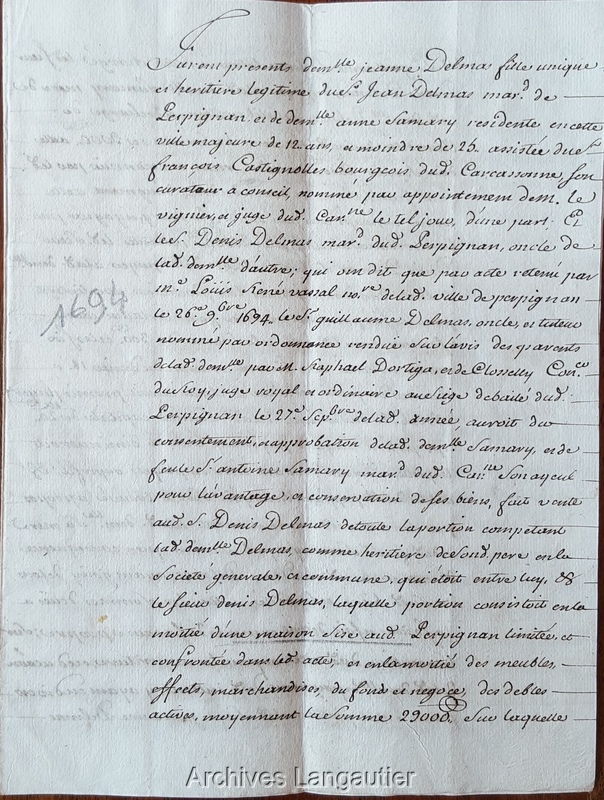 furent presents dem.lle jeanne Delma fille unique
et heritiere legitime du S.r Jean Delmas mar.d de
Perpignan et de dem.lle anne Samary residente en cette
ville majeure de 12 ans, et moindre de 25. assistée du S.r
françois Castignolles bourgeois dud. Carcassonne, son
curateur a conseil, nommé par appointement de m. le
viguier, et juge dud. Car.nne le tel jour, d'une part; Et
le S.r Denis Delmas mar.d dud. Perpignan, oncle de
lad. dem.lle d'autre; qui ont dit que par acte retenu par
m.e Loüis René vassal no.re de lad. ville de perpignan
1694
le 26.e 9.bre 1694. le S.r guillaume Delmas, oncle, et tuteur
nommé par ordonnance rendue sur lavis des parents
de lad. dem.lle par M. Raphael Dortiga, et de Con.er
du Roy, juge royal et ordinaire au siege debailé dud.
Perpignan le 27.e Sep.bre de lad. année, auroit du
consentement, et approbation de lad. dem.lle Samary, et de
feu le S.r antoine Samary mar.d dud. Car.nne Son ayeul
pour lavantage, et conservation de ses biens, fait vente
aud. S. Denis Delmas de toute la portion competant
lad. dem.lle Delmas, comme heritiere de Sond. pere en la
Societé génerale, et commune, qui étoit entre luy, &
le sieur denis Delmas, laquelle portion consistoit en la
moitié d'une maison sise aud. Perpignan limitée, et
confrontée dans led. acte, et en la moitié des meubles,
effects, marchandises, du fond et negoce, des debtes
actives, moyennant la Somme 29000. Sur laquelle
Archives Langautier